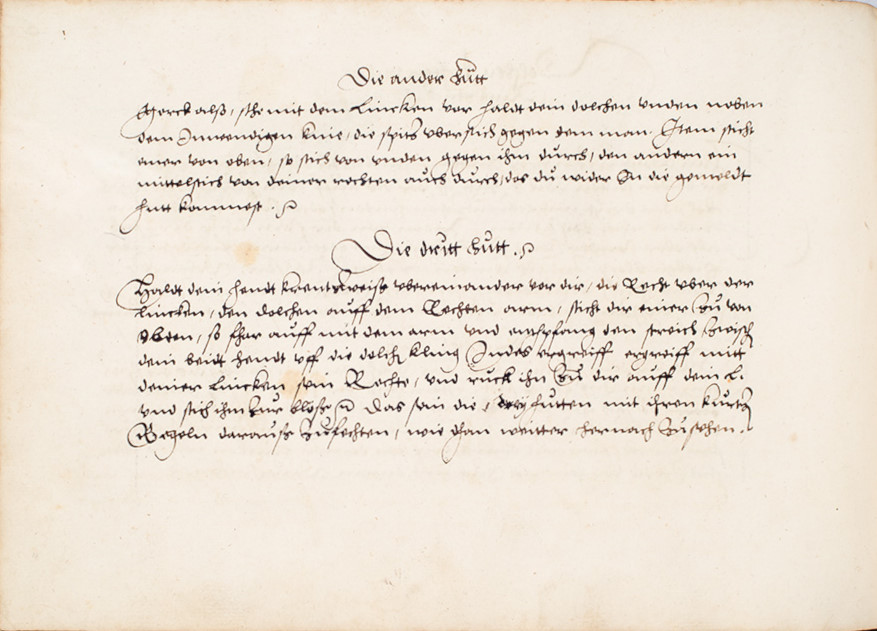 Die ander hutt
Merck also, sthe mit dem Lincken vor haldt dein dolchen vnden neben
dem Inwendigen knie, die spitz vbersich gegen dem man. Item sticht
einer von oben, so stich von vnden gegen ihm durch, den andern ein
mittelstich von deiner rechten auch durch, das du wider In die gemeldt
hutt kommest.
Die dritt hutt.
Haldt dein hendt kreutzweiss vbereinander vor dir, die Recht vber der
Lincken, den dolchen auff dem Rechten arm, sticht dir einer zu von
oben, so fhar auff mit dem arm vnd entpfang den streich zwisch
dein beide hendt vff die dolch kling Indes ergreiff ergreiff mitt
deiner lincken sein Rechte, vnd ruck ihn zu dir auff dein li
vnd stich ihm zur blösse Das sein die drey hutten mit ihren kurtz
Regeln darauss zufechten, wie man weitter hernach zusehen.